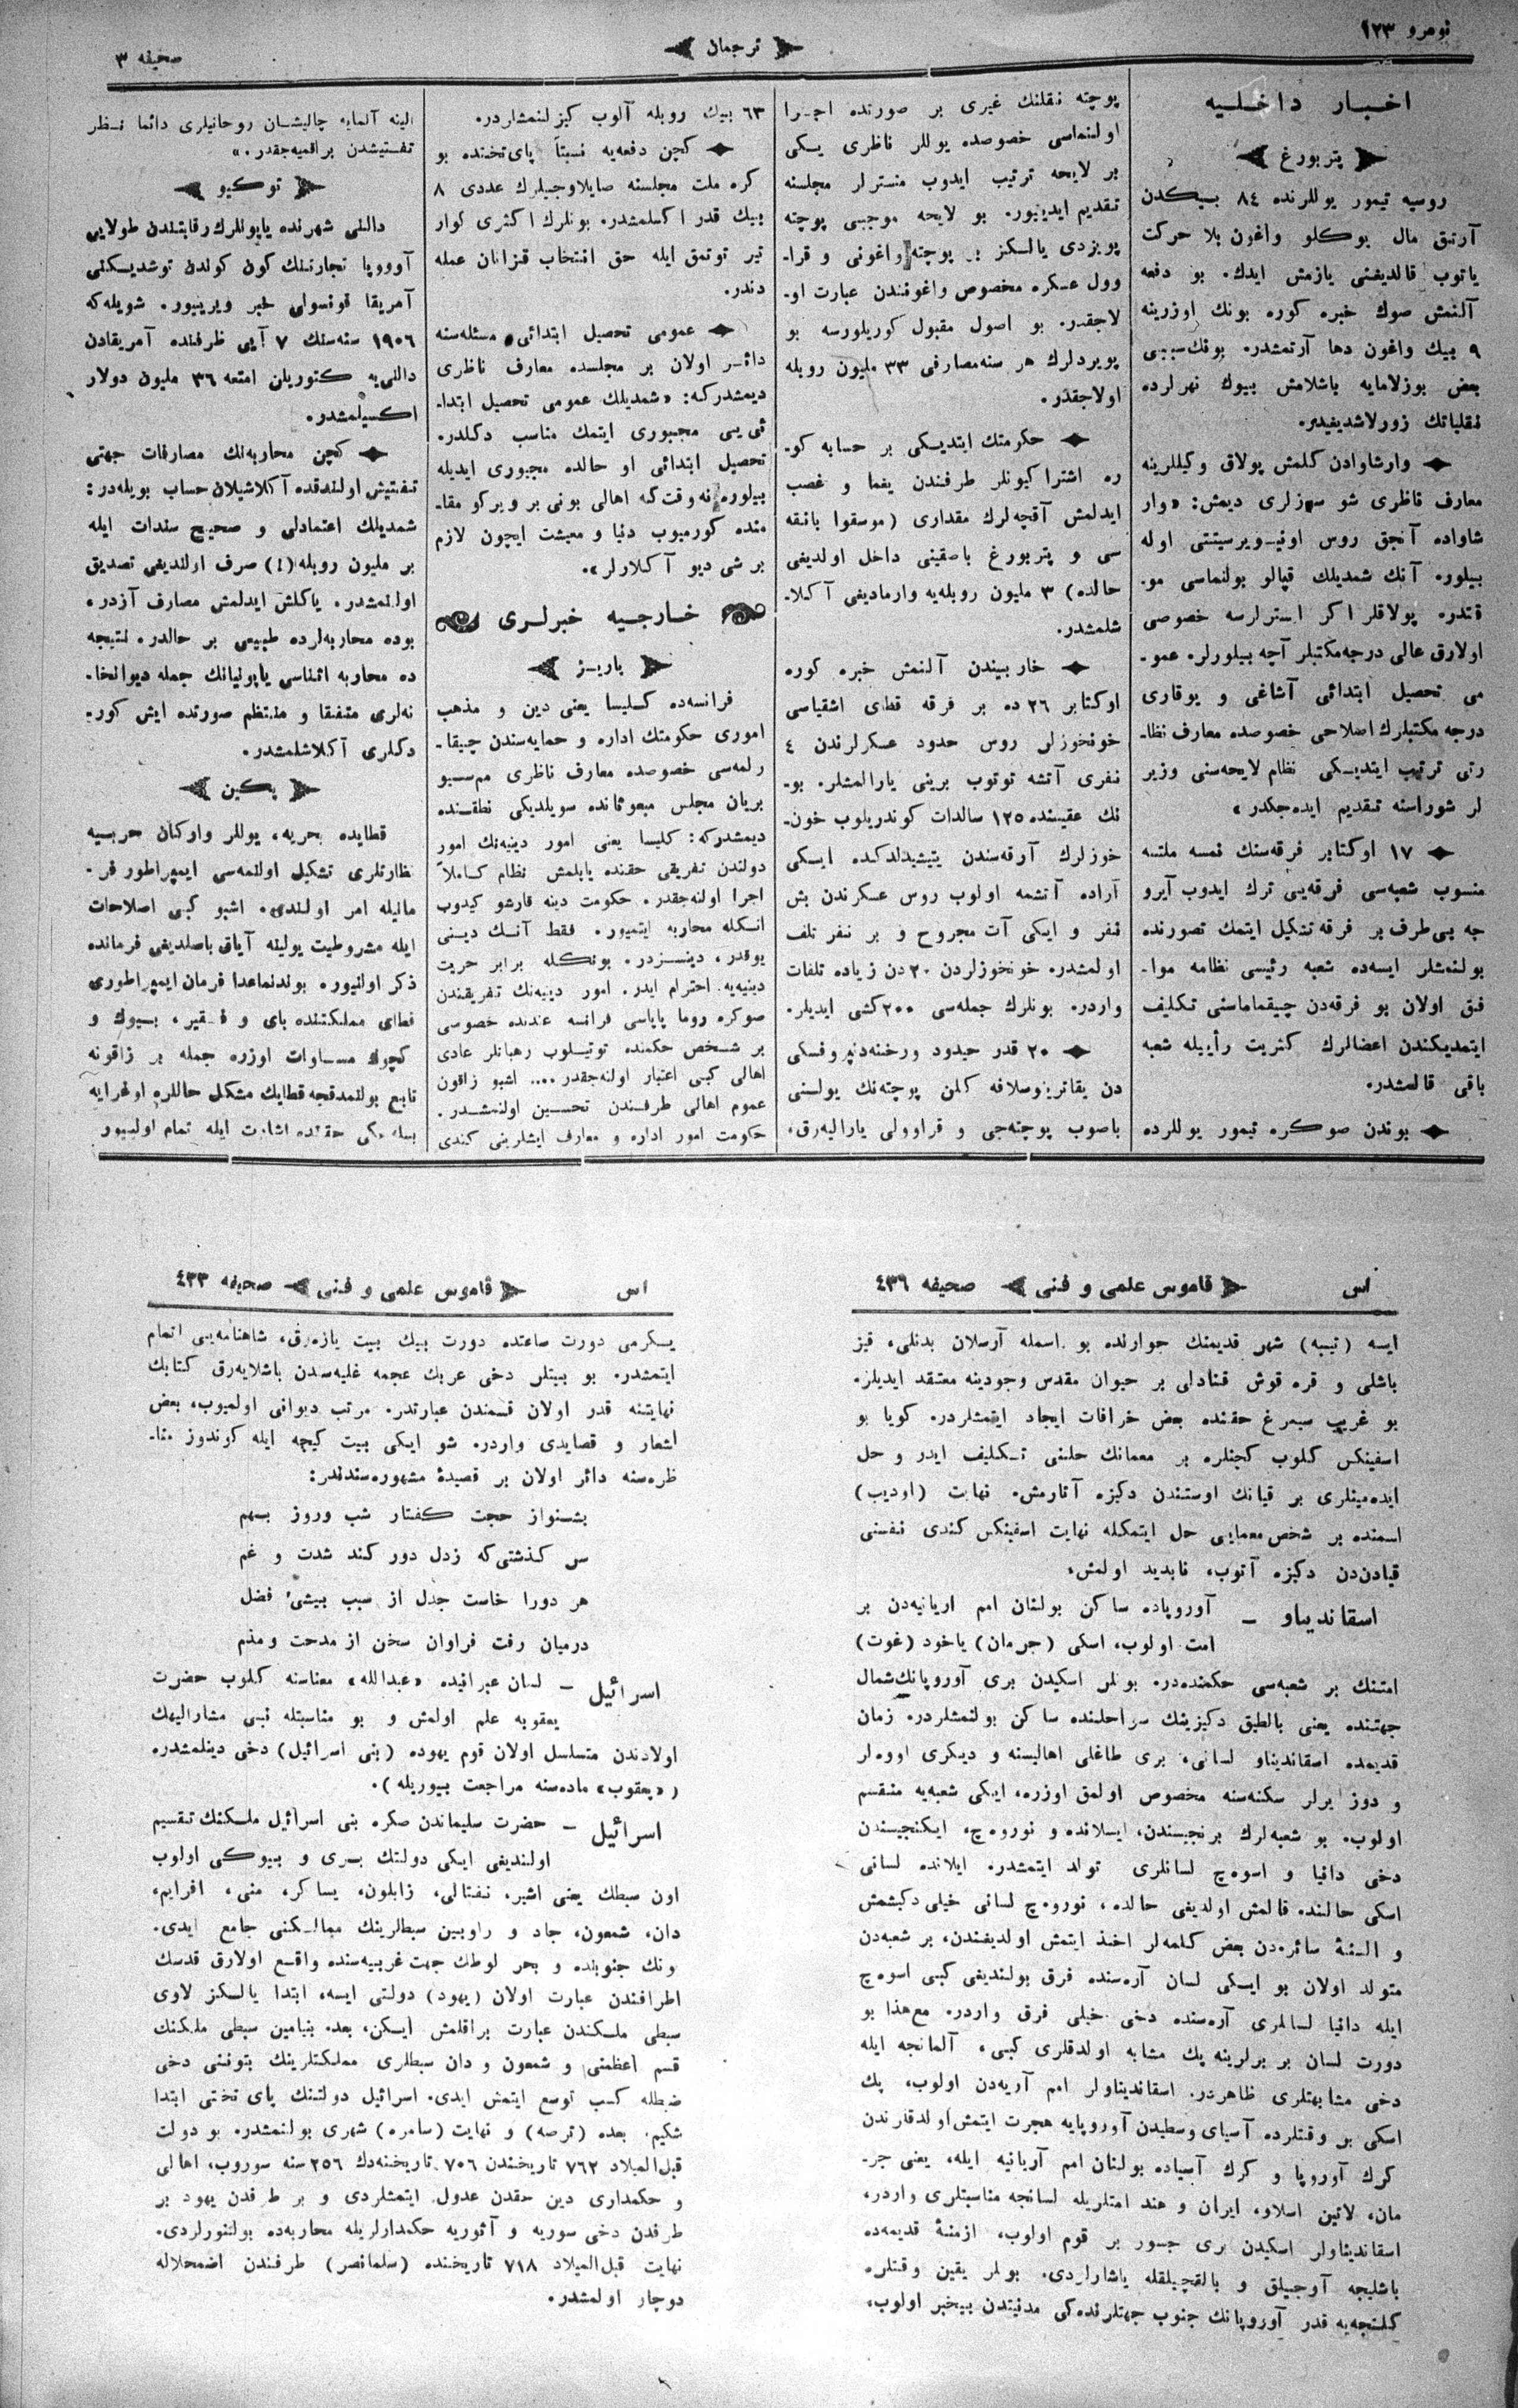 نومرو ١٢٣
ترجمان
صحیفه ٣
اخبار داخلیه
پتربورغ
روسیه تیمور یوللرنده ٨٤ بیڭدن
آرتق مال یوکلو واغون بلا حرکت
یاتوب قالدیغنی یازمش ایدك. بو دفعه
آلنمش صوڭ خبره کوره بونك اوزرینه
٩ بیڭ واغون دها آرتمشدر. بونك سببی
بعض بوزلامایه باشلامش بیوك نهرلرده
نقلیاتك زورلاشدیغیدر.
وارشاوادن کلمش پولاق وکیللرینه
معارف ناظری شو سوزلری دیمش: «وار
شاواده آنجق روس اونیـویرسیتتی اوله
بیلور. آنك شمدیلك قپالو بولنماسی مو-
قتدر. پولاقلر اکر استرلرسه خصوصی
اولارق عالی درجه مکتبلر آچه بیلورلر. عمو-
می تحصیل ابتدائی آشاغی و یوقاری
درجه مکتبلرك اصلاحی خصوصده معارف نظا-
رتی ترتیب ایتدیکی نظام لایحه‌سنی وزیر
لر شوراسنه تقدیم ایده‌جکدر»
١٧ اوکتابر فرقه‌سنك نمسه ملتنه
منسوب شعبه‌سی فرقه‌یی ترك ایدوب آیرو
جه بی‌طرف بر فرقه تشکیل ایتمك تصورنده
بولنمشلر ایسه‌ده شعبه رئیسی نظامه موا-
فق اولان بو فرقه‌دن چیقماماسنی تکلیف
ایتمدیکندن اعضالرك کثریت رأییله شعبه
باقی قالمشدر.
بوندن صوڭره تیمور یوللرده
پوچته نقلنك غیری بر صورنده اجرا
اولنماسی خصوصده یوللر ناظری یکی
بر لایحه ترتیب ایدوب منسترلر مجلسنه
تقدیم ایدییور. بو لایحه موجبی پوچته
پویزدی یالکز بر پوچته واغونی و قرا-
وول عسکره مخصوص واغونندن عبارت او-
لاجقدر. بو اصول مقبول کوریلورسه بو
پویزدلرك هر سنه مصارفی ٣٣ ملیون روبله
اولاجقدر.
حکومتك ایتدیکی بر حسابه کو-
ره اشتراکیونلر طرفندن یغما و غصب
ایدلمش آقچه‌لرك مقداری (موسقوا بانقه
سی و پتربورغ باصقینی داخل اولدیغی
حالده) ٣ ملیون روبله‌یه وارمادیغی آڭلا-
شلمشدر.
خاربیندن آلنمش خبره کوره
اوکتابر ٢٦ ده بر فرقه قطای اشقیاسی
خونخوزلر روس حدود عسکرلرندن ٤
نفری آتشه توتوب برینی یارالمشلر. بو-
نك عقبنده ١٢٥ سالدات کوندریلوب خون-
خوزلرك آرقه‌سندن یتیشیدلدکده ایکی
آراده آتشمه اولوب روس عسکرندن بش
نفر و ایکی آت مجروح و بر نفر تلف
اولمشدر. خونخوزلردن ٢٠ دن زیاده تلفات
واردر. بونلرك جمله‌سی ٢٠٠ کشی ایدیلر.
٢٠ قدر حیدود ورخنه‌دنپروفسکی
دن یقاترینوسلافه کلن پوچته‌نك یولنی
باصوب پوچته‌جی و قراوولی یارالیه‌رق،
٦٣ بیڭ روبله آلوب کیزلنمشلردر.
کچن دفعه‌یه نسبتاً پای‌تختده بو
کره ملت مجلسنه صایلاوجیلرك عددی ٨
بیڭ قدر اکسلمشدر. بونلرك اکثری کوار
تیر توتمق ایله حق انتخاب قزانان عمله
دندر.
عمومی تحصیل ابتدائی مسئله‌سنه
دائر اولان بر مجلسده معارف ناظری
دیمشدرکه: «شمدیلك عمومی تحصیل ابتدا-
ئی‌یی مجبوری ایتمك مناسب دکلدر.
تحصیل ابتدائی او حالده مجبوری ایدیله
بیلوره نه وقت که اهالی بونی بر ویرکو مقا-
منده کورمیوب دنیا و معیشت ایچون لازم
بر شی دیو آڭلارلر».
خارجیه خبرلری
پاریز
فرانسه‌ده کلیسا یعنی دین و مذهب
اموری حکومتك اداره و حمایه‌سندن چیقا-
رلمه‌سی خصوصده معارف ناظری مم‌سیو
بریان مجلس مبعوثانده سویلدیکی نطقنده
دیمشدرکه: کلیسا یعنی امور دینیه‌نك امور
دولتدن تفریقی حقنده یاپلمش نظام کاملاً
اجرا اولنه‌جقدر. حکومت دینه قارشو کیدوب
انکله محاربه ایتمیور. فقط آنك دینی
یوقدر، دینسزدر. بونکله برابر حریت
دینیه‌یه احترام ایدر. امور دینیه‌نك تفریقندن
صوکره روما پاپاسی فرانسه عندنده خصوصی
بر شخص حکمنده توتیلوب رهبانلر عادی
اهالی کبی اعتبار اولنه‌جقدر.... اشبو زاقون
عموم اهالی طرفندن تحسین اولنمشدر.
حکومت امور اداره و معارف ایشلرینی کندی
الینه آلمایه چالیشان روحانیلری دائما نظر
تفتیشدن براقمیه‌جقدر.»
توکیو
دالنی شهرنده یاپونلرك رقابتندن طولایی
آوروپا تجارتنك کون کوندن توشدیکنی
آمریقا قونسولی خبر ویرییور. شویله‌که
١٩٠٦ سنه‌سنك ٧ آیی ظرفنده آمریقادن
دالنی‌یه کتوریلن امتعه ٣٦ ملیون دولار
اکسیلمشدر.
کچن محاربه‌نك مصارفات جهتی
تفتیش اولندقده آڭلاشیلان حساب بویله‌در:
شمدیلك اعتمادلی و صحیح سندات ایله
بر ملیون روبله (!) صرف اولندیغی تصدیق
اولنمشدر. یاڭلش ایدلمش مصارف آزدر،
بوده محاربه‌لرده طبیعی بر حالدر. نتیجه
ده محاربه اثناسی یاپونیانك جمله دیوانخا-
نه‌لری متفقا و منتظم صورتده ایش کور-
دکلری آڭلاشلمشدر.
پکین
قطایده بحریه، یوللر واوکتان حربیه
نظارتلری تشکیل اولنمه‌سی ایمپراطور فر-
مانیله امر اولندی. اشبو کبی اصلاحات
ایله مشروطیت یولینه آیاق باصلدیغی فرمانده
ذکر اولنیور. بوندنماعدا فرمان ایمپراطوری
قطای مملکتنده بای و فقیر، بیوك و
کچوك مساوات اوزره جمله بر زاقونه
تابع بولنمدقجه قطایك مشکل حاللره اوغرایه
حقنده اشارت ایله تمام اولییور
اس
قاموس علمی و فنی
صحیفه ٤٣٦
ایسه (تیبه) شهر قدیمنك جوارنده بو اسمله آرسلان بدنلی، قیز
باشلی و قره قوش قنادلی بر حیوان مقدس وجودینه معتقد ایدیلر.
بو غریب سیمرغ حقنده بعض خرافات ایجاد ایتمشلردر. کویا بو
اسفینکس کلوب کچنلره بر معمانك حلنی تکلیف ایدر و حل
ایده‌مینلری بر قیانك اوستندن دکیزه آتارمش. نهایت (اودیب)
اسمنده بر شخص معمایی حل ایتمکله نهایت اسفینکس کندی نفسنی
قیادن‌دن دکیزه آتوب، ناپدید اولمش.
اسقاندیناو – آوروپاده ساکن بولنان امم اریانیه‌دن بر
امت اولوب، اسکی (جرمان) یاخود (غوت)
امتنك بر شعبه‌سی حکمنده‌در. بونلر اسکیدن بری آوروپانك شمال
جهتنده یعنی بالطیق دکیزینك سواحلنده ساکن بولنمشلردر. زمان
قدیمده اسقاندیناو لسانی، بری طاغلی اهالیسنه و دیکری اووه‌لر
و دوز یرلر سکنه‌سنه مخصوص اولمق اوزره، ایکی شعبه‌یه منقسم
اولوب، بو شعبه‌لرك برنجیسندن، ایسلانده و نوروه‌چ، ایکنجیسندن
دخی دانیا و اسوه‌چ لسانلری تولد ایتمشدر. ایلانده لسانی
اسکی حالنده قالمش اولدیغی حالده، نوروه‌چ لسانی خیلی دکیشمش
و السنهٔ سائره‌دن بعض کلمه‌لر اخذ ایتمش اولدیغندن، بر شعبه‌دن
متولد اولان بو ایکی لسان آره‌سنده فرق بولندیغی کبی اسوه‌چ
ایله دانیا لسانلری آره‌سنده دخی خیلی فرق واردر. مع‌هذا بو
دورت لسان بر برلرینه پك مشابه اولدقلری کبی، آلمانجه ایله
دخی مشابهتلری ظاهردر. اسقاندیناولر امم آریه‌دن اولوب، پك
اسکی بر وقتلرده آسیای وسطیدن آوروپایه هجرت ایتمش اولدقلرندن
کرك آوروپا و کرك آسیاده بولنان امم آریانیه ایله، یعنی جر-
مان، لاتین اسلاو، ایران و هند امتلریله لسانجه مناسبتلری واردر.
اسقاندیناولر اسکیدن بری جسور بر قوم اولوب، ازمنهٔ قدیمه‌ده
باشلیجه آوجیلق و بالقچیلقله یاشارلردی. بونلر یقین وقتلره
کلنجه‌یه قدر آوروپانك جنوب جهتلرنده‌کی مدنیتدن بیخبر اولوب،
اس
قاموس علمی و فنی
صحیفه ٤٣٣
یکرمی دورت ساعتده دورت بیڭ بیت یازه‌رق، شاهنامه‌یی اتمام
ایتمشدر. بو بیتلر دخی عربك عجمه غلبه‌سندن باشلایه‌رق کتابك
نهایتنه قدر اولان قسمندن عبارتدر. مرتب دیوانی اولمیوب، بعض
اشعار و قصایدی واردر. شو ایکی بیت کیجه ایله کوندوز منا-
ظره‌سنه دائر اولان بر قصیدهٔ مشهوره‌سندندر:
بشنواز حجت کفتار شب وروز بهم
سر کذشتی‌که زدل دور کند شدت و غم
هر دورا خاست جدل از سبب بیشیٔ فضل
درمیان رفت فراوان سخن از مدحت ومذم
اسرائیل – لسان عبرانیده «عبدالله» معناسنه کلوب حضرت
یعقوبه علم اولمش و بو مناسبتله نبی مشارالیهك
اولادندن متسلسل اولان قوم یهوده (بنی اسرائیل) دخی دینلمشدر.
(«یعقوب» ماده‌سنه مراجعت بیوریله).
اسرائیل – حضرت سلیماندن صکره بنی اسرائیل ملکنك تقسیم
اولندیغی ایکی دولتك بری و بیوکی اولوب
اون سبطك یعنی اشیر، نفتالی، زابلون، یساکر، منی، افرایم،
دان، شمعون، جاد و راوبین سبطلرینك ممالکنی جامع ایدی.
ونك جنوبنده و بحر لوطك جهت غربیه‌سنده واقع اولارق قدسك
اطرافندن عبارت اولان (یهود) دولتی ایسه، ابتدا یالکز لاوی
سبطی ملکندن عبارت براقلمش ایکن، بعده بنیامین سبطی ملکنك
قسم اعظمنی و شمعون و دان سبطلری مملکتلرینك بتوننی دخی
ضبطله کسب توسع ایتمش ایدی. اسرائیل دولتنك پای تختی ابتدا
شکیم، بعده (ترصه) و نهایت (سامره) شهری بولنمشدر. بو دولت
قبل‌المیلاد ٧٦٢ تاریخندن ٧٠٦ تاریخنه‌دك ٢٥٦ سنه سوروب، اهالی
و حکمداری دین حقدن عدول ایتمشلردی و بر طرفدن یهود بر
طرفدن دخی سوریه و آثوریه حکمدارلریله محاربه‌ده بولنورلردی.
نهایت قبل‌المیلاد ٧١٨ تاریخنده (سلمانصر) طرفندن اضمحلاله
دوچار اولمشدر.